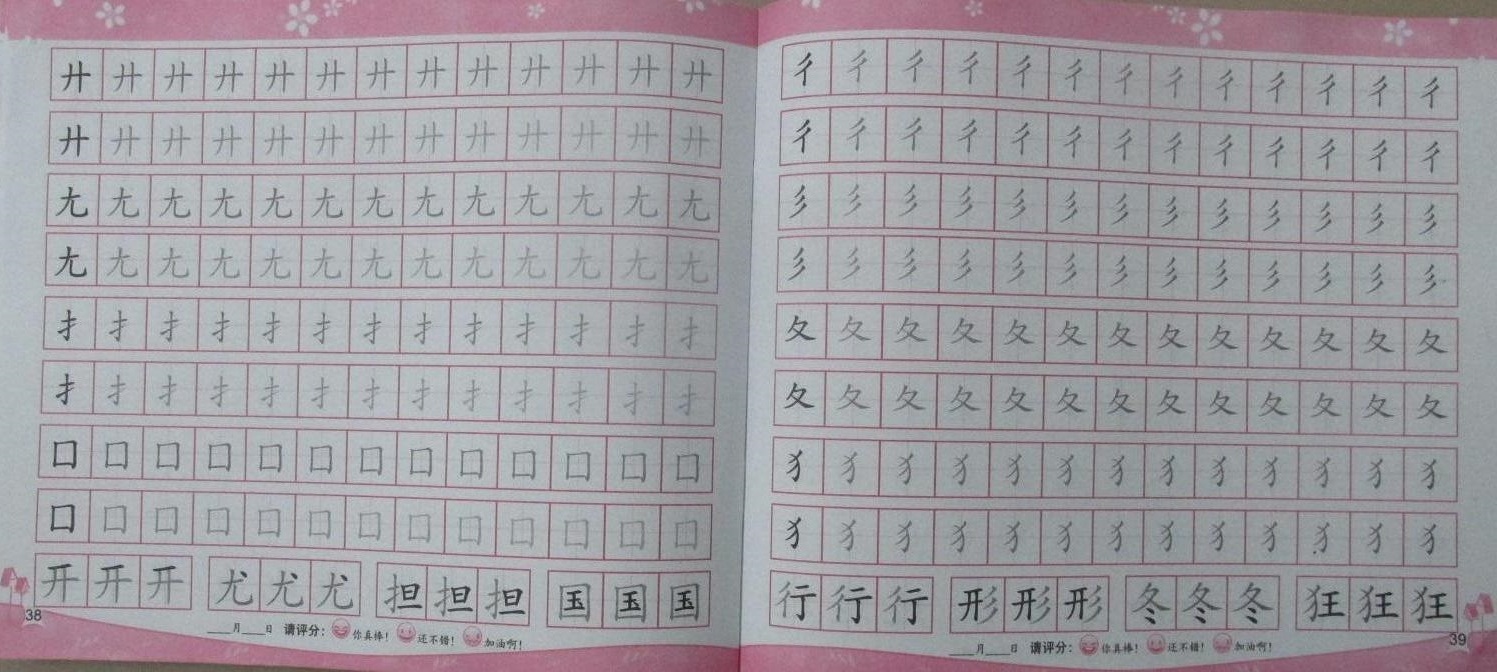 廾 廾 廾 廾 廾 廾 廾 廾 廾 廾 廾 廾 廾
廾 廾 廾 廾 廾 廾 廾 廾 廾 廾 廾 廾 廾
尢 尢 尢 尢 尢 尢 尢 尢 尢 尢 尢 尢 尢
尢 尢 尢 尢 尢 尢 尢 尢 尢 尢 尢 尢 尢
扌 扌 扌 扌 扌 扌 扌 扌 扌 扌 扌 扌 扌
扌 扌 扌 扌 扌 扌 扌 扌 扌 扌 扌 扌 扌
囗 囗 囗 囗 囗 囗 囗 囗 囗 囗 囗 囗 囗
囗 囗 囗 囗 囗 囗 囗 囗 囗 囗 囗 囗 囗
开 开 开 尤 尤 尤 担 担 担 国 国 国
38
___月___日 请评分: 你真棒! 还不错! 加油啊!
彳 彳 彳 彳 彳 彳 彳 彳 彳 彳 彳 彳 彳
彳 彳 彳 彳 彳 彳 彳 彳 彳 彳 彳 彳 彳
彡 彡 彡 彡 彡 彡 彡 彡 彡 彡 彡 彡 彡
彡 彡 彡 彡 彡 彡 彡 彡 彡 彡 彡 彡 彡
夂 夂 夂 夂 夂 夂 夂 夂 夂 夂 夂 夂 夂
夂 夂 夂 夂 夂 夂 夂 夂 夂 夂 夂 夂 夂
犭 犭 犭 犭 犭 犭 犭 犭 犭 犭 犭 犭 犭
犭 犭 犭 犭 犭 犭 犭 犭 犭 犭 犭 犭 犭
行 行 行 形 形 形 冬 冬 冬 狂 狂 狂
___月___日 请评分: 你真棒! 还不错! 加油啊!
39